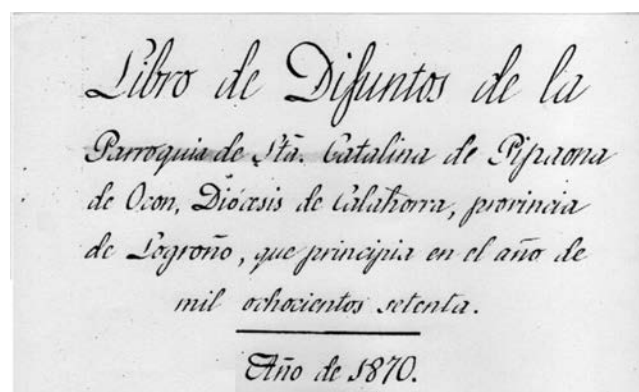 Libro de Difuntos de la
Parroquia de Sta. Catalina de Pipaona
de Ocon, Diócesis de Calahorra, provincia
de Logroño, que principia en el año de
mil ochocientos setenta.
Año de 1870.